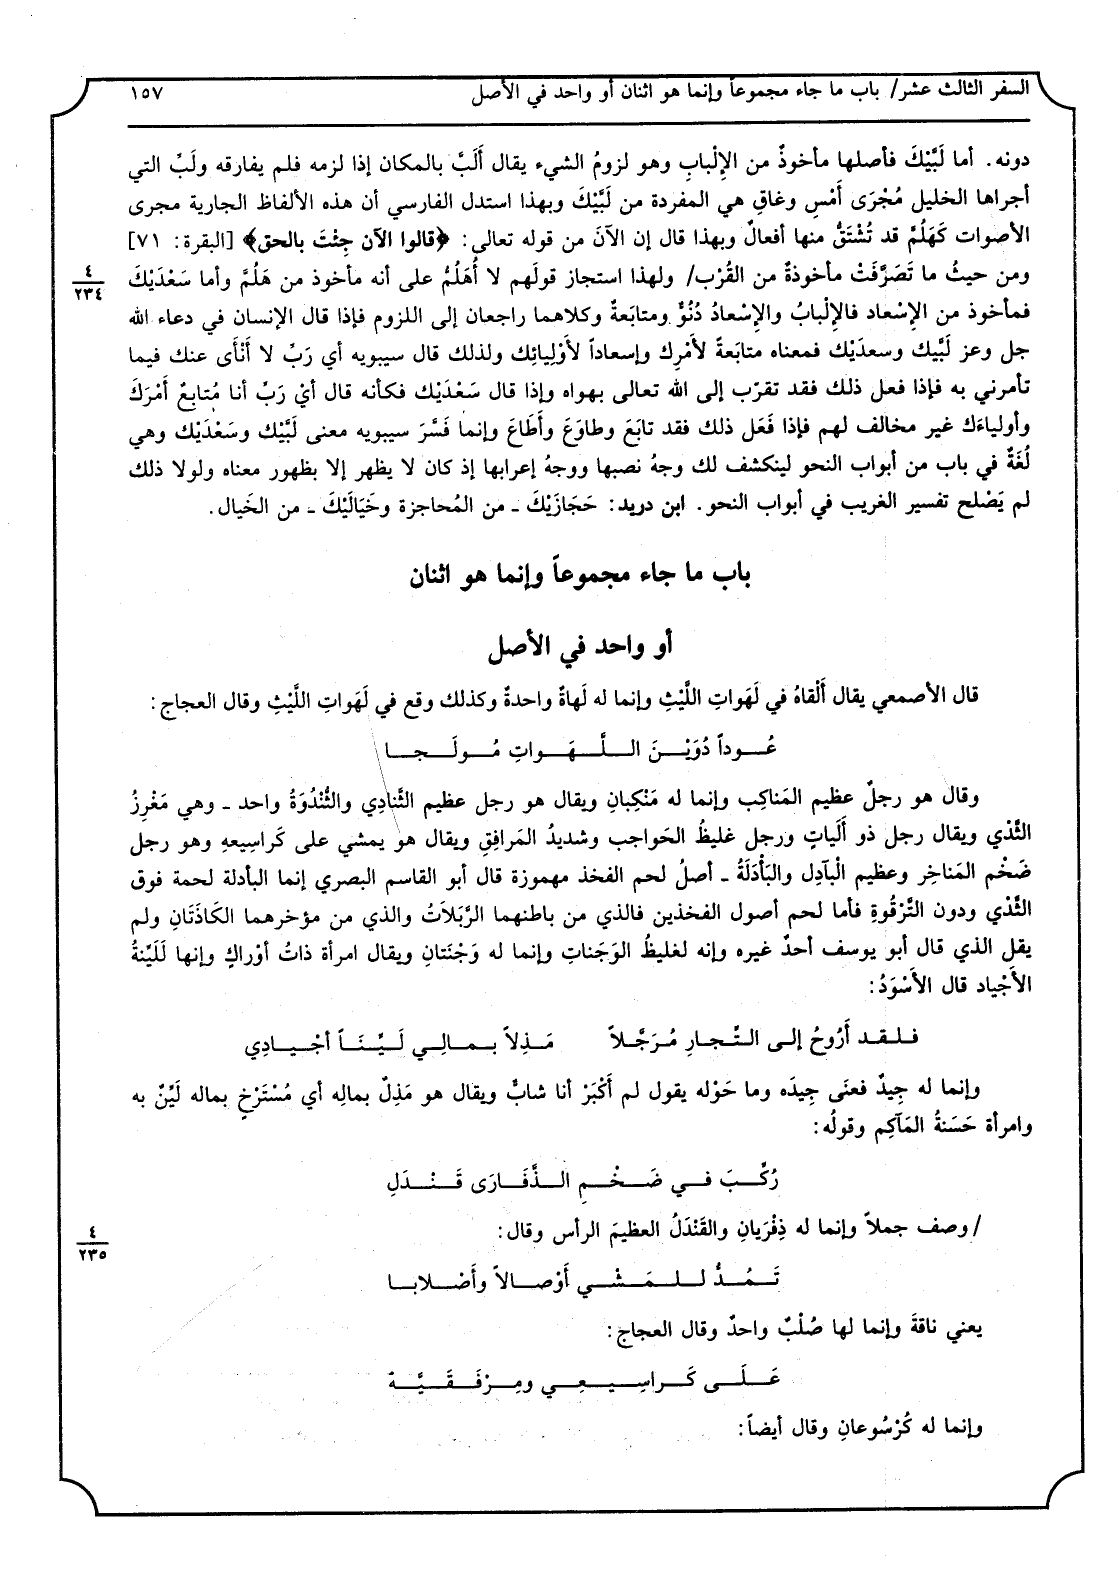 السفر الثالث عشر/ باب ما جاء مجموعاً وإنما هو اثنان أو واحد في الأصل ١٥٧
دونه. أما لَبَّيْكَ فأصلها مأخوذٌ من الإِلْبابِ وهو لزومُ الشيء يقال أَلَبَّ بالمكان إذا لزمه فلم يفارقه ولَبِّ التي
أجراها الخليل مُجْرَى أَمْسِ وغاقِ هي المفردة من لَبَّيْكَ وبهذا استدل الفارسي أن هذه الألفاظ الجارية مجرى
الأصوات كَهَلُمَّ قد تُشْتَقُّ منها أفعالٌ وبهذا قال إن الآنَ من قوله تعالى: ﴿قالوا الآن جِئْتَ بالحق﴾ [البقرة: ٧١]
ومن حيثُ ما تَصَرَّفَتْ مأخوذةٌ من القُرْب/ ولهذا استجاز قولَهم لا أُهَلُمُّ على أنه مأخوذ من هَلُمَّ وأما سَعْدَيْكَ
٤
٢٣٤
فمأخوذ من الإِسْعاد فالإِلْبابُ والإِسْعادُ دُنُوٌّ ومتابَعةٌ وكلاهما راجعان إلى اللزوم فإذا قال الإنسان في دعاء الله
جل وعز لَبَّيك وسعدَيْك فمعناه متابَعةً لأمْرِك وإسعاداً لأوْلِيائِك ولذلك قال سيبويه أي رَبِّ لا أَنْأَى عنك فيما
تأمرني به فإذا فعل ذلك فقد تقرّب إلى الله تعالى بهواه وإذا قال سَعْدَيْك فكأنه قال أيْ رَبِّ أنا مُتابِعٌ أَمْرَكَ
وأولياءَك غير مخالف لهم فإذا فَعَل ذلك فقد تابَعَ وطاوَعَ وأَطَاعَ وإنما فَسَّرَ سيبويه معنى لَبَّيْك وسَعْدَيْك وهي
لُغَةٌ في باب من أبواب النحو لينكشف لك وجهُ نصبها ووجهُ إعرابها إذ كان لا يظهر إلا بظهور معناه ولولا ذلك
لم يَصْلح تفسير الغريب في أبواب النحو. ابن دريد: حَجَازَيْكَ ـ من المُحاجزة وخَيَالَيْكَ ـ من الخَيال.
باب ما جاء مجموعاً وإنما هو اثنان
أو واحد في الأصل
قال الأصمعي يقال أَلْقاهُ في لَهَواتِ اللَّيْثِ وإنما له لَهاةٌ واحدةٌ وكذلك وقع في لَهَواتِ اللَّيْثِ وقال العجاج:
عُــوداً دُوَيْــنَ الــلَّــهَــواتِ مُــولَــجــا
وقال هو رجلٌ عظيم المَناكِب وإنما له مَنْكِبانِ ويقال هو رجل عظيم الثَّنادِي والثُّنْدُوَةُ واحد ـ وهي مَغْرِزُ
الثَّدْي ويقال رجل ذو أَلَياتٍ ورجل غليظُ الحَواجب وشديدُ المَرافِقِ ويقال هو يمشي على كَراسِيعهِ وهو رجل
ضَخْم المَناخِر وعظيم الْبَآدِل والبَأْدَلَةُ ـ أصلُ لحم الفخذ مهموزة قال أبو القاسم البصري إنما البأدلة لحمة فوق
الثَّدْي ودون التَّرْقُوةِ فأما لحم أصول الفخذين فالذي من باطنهما الرَّبَلاَتُ والذي من مؤخرهما الكَاذَتَانِ ولم
يقل الذي قال أبو يوسف أحدٌ غيره وإنه لغليظُ الوَجَناتِ وإنما له وَجْنَتانِ ويقال امرأة ذاتُ أوْراكٍ وإنها لَلَيِّنةُ
الأَجْياد قال الأسْوَدُ:
فــلــقــد أَرُوحُ إلــى التِّــجــارِ مُــرَجَّــلاً مَــذِلاً بــمــالــي لَــيِّــنَــاً أجْــيــادِي
وإنما له جِيدٌ فعنَى جِيدَه وما حَوْله يقول لم أَكْبَرْ أنا شابٌّ ويقال هو مَذِلٌ بمالِه أي مُسْتَرْخٍ بماله لَيِّنٌ به
وامرأة حَسَنةُ المَآكِم وقولُه:
رُكِّــبَ فــي ضَــخْــمِ الــذَّفَــارَى قَــنْــدَلِ
/ وصف جملاً وإنما له ذِفْرَيانِ والقَنْدَلُ العظيمَ الرأس وقال:
٤
٢٣٥
تَــمُــدُّ لــلــمَــشْــي أوْصــالاً وأَصْــلابــا
يعني ناقةً وإنما لها صُلْبٌ واحدٌ وقال العجاج:
عَــلَــى كَــراسِــيــعِــي ومِــرْفَــقَــيَّــهْ
وإنما له كُرْسُوعانِ وقال أيضاً: